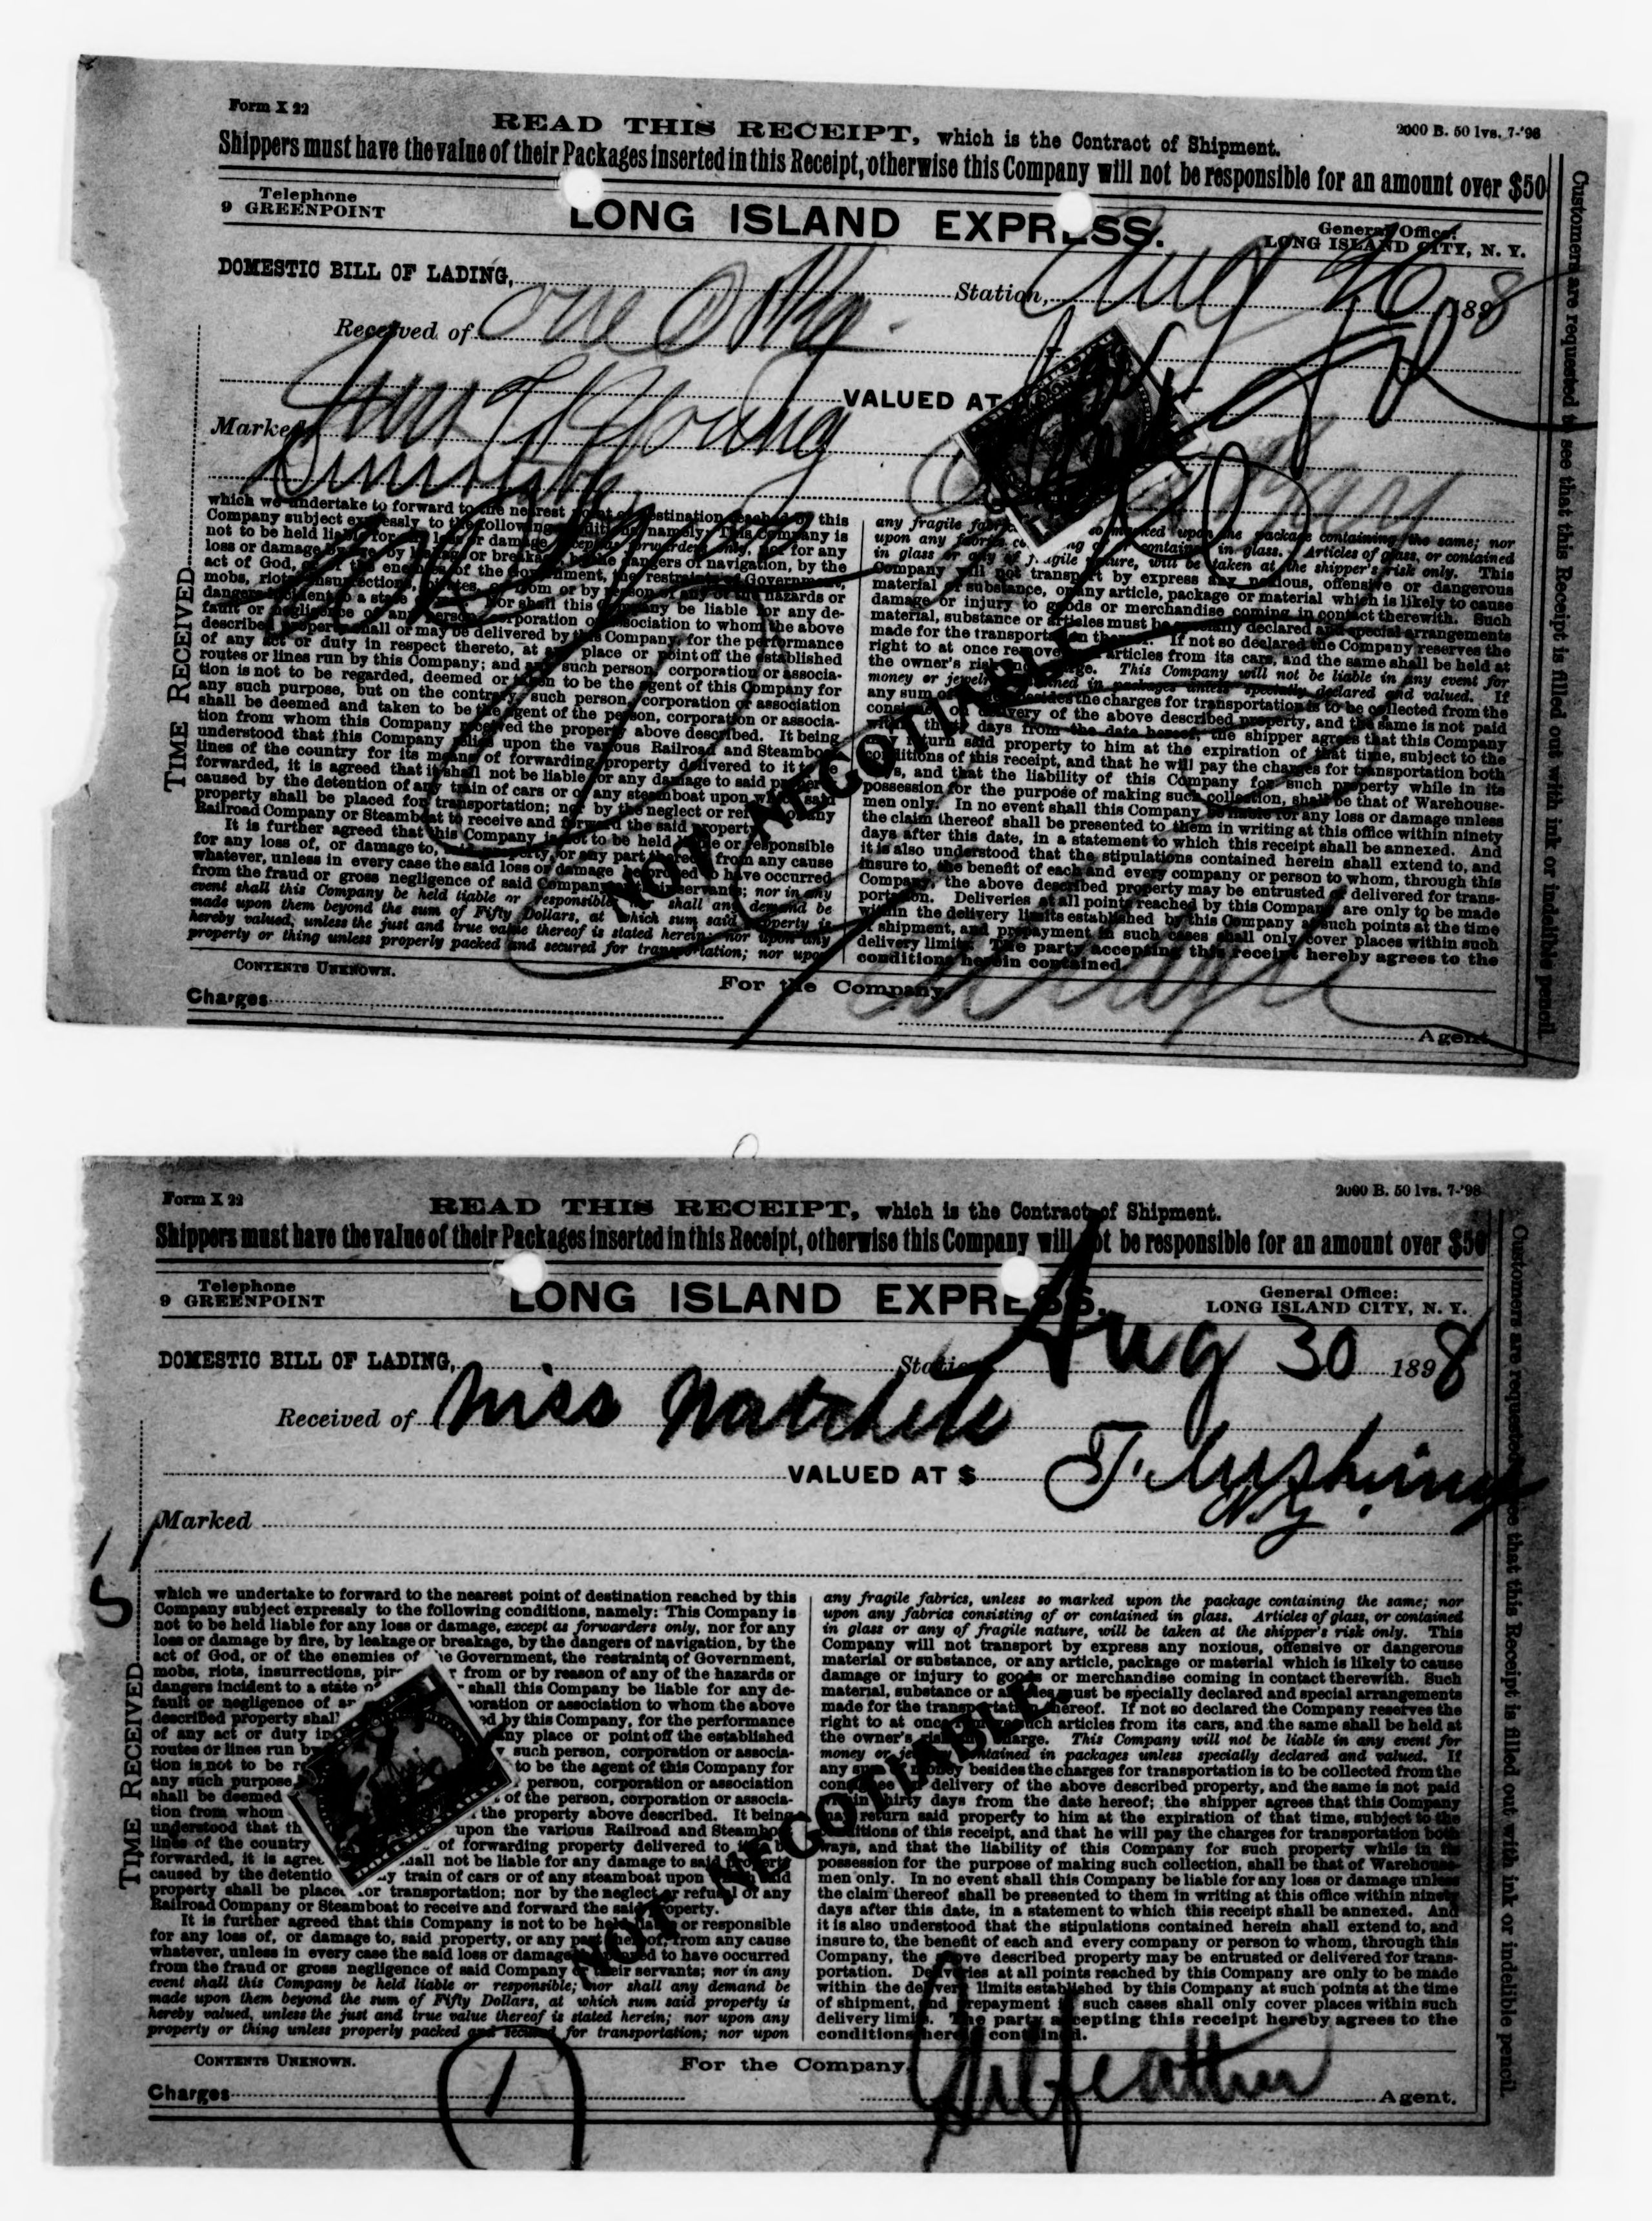 Form X 22
2000 B. 50 lvs. 7-'98
READ THIS RECEIPT, which is the Contract of Shipment.
Shippers must have the value of their Packages inserted in this Receipt, otherwise this Company will not be responsible for an amount over $50
Telephone
9 GREENPOINT
LONG ISLAND EXPRESS.
General Office:
LONG ISLAND CITY, N. Y.
DOMESTIC BILL OF LADING, Station, Aug 26 1898
Received of one
VALUED AT
Marked Young
TIME RECEIVED
Customers are requested to see that this Receipt is filled out with ink or indelible pencil.
which we undertake to forward to the nearest point of destination reached by this
Company subject expressly to the following conditions, namely: This Company is
not to be held liable for any loss or damage, except as forwarders only, nor for any
loss or damage by fire, by leakage or breakage, by the dangers of navigation, by the
act of God, or of the enemies of the Government, the restraints of Government,
mobs, riots, insurrections, pirates, or from or by reason of any of the hazards or
dangers incident to a state of nor shall this Company be liable for any de-
fault or negligence of any person, corporation or association to whom the above
described property shall or may be delivered by this Company, for the performance
of any act or duty in respect thereto, at any place or point off the established
routes or lines run by this Company; and any such person, corporation or associa-
tion is not to be regarded, deemed or taken to be the agent of this Company for
any such purpose, but on the contrary, such person, corporation or association
shall be deemed and taken to be the agent of the person, corporation or associa-
tion from whom this Company received the property above described. It being
understood that this Company relies upon the various Railroad and Steamboat
lines of the country for its means of forwarding property delivered to it to be
forwarded, it is agreed that it shall not be liable for any damage to said property
caused by the detention of any train of cars or of any steamboat upon which said
property shall be placed for transportation; nor by the neglect or refusal of any
Railroad Company or Steamboat to receive and forward the said property.
It is further agreed that this Company is not to be held liable or responsible
for any loss of, or damage to, said property, or any part thereof, from any cause
whatever, unless in every case the said loss or damage be proved to have occurred
from the fraud or gross negligence of said Company or their servants; nor in any
event shall this Company be held liable or responsible, nor shall any demand be
made upon them beyond the sum of Fifty Dollars, at which sum said property is
hereby valued, unless the just and true value thereof is stated herein; nor upon any
property or thing unless properly packed and secured for transportation; nor upon
any fragile fabrics, unless so marked upon the package containing the same; nor
upon any fabrics consisting of or contained in glass. Articles of glass, or contained
in glass or any of fragile nature, will be taken at the shipper's risk only. This
Company will not transport by express any noxious, offensive or dangerous
material or substance, or any article, package or material which is likely to cause
damage or injury to goods or merchandise coming in contact therewith. Such
material, substance or articles must be specially declared and special arrangements
made for the transportation thereof. If not so declared the Company reserves the
right to at once remove such articles from its cars, and the same shall be held at
the owner's risk and charge. This Company will not be liable in any event for
money or jewelry contained in packages unless specially declared and valued. If
any sum of money besides the charges for transportation is to be collected from the
consignee on delivery of the above described property, and the same is not paid
within thirty days from the date hereof; the shipper agrees that this Company
may return said property to him at the expiration of that time, subject to the
conditions of this receipt, and that he will pay the charges for transportation both
ways, and that the liability of this Company for such property while in its
possession for the purpose of making such collection, shall be that of Warehouse-
men only. In no event shall this Company be liable for any loss or damage unless
the claim thereof shall be presented to them in writing at this office within ninety
days after this date, in a statement to which this receipt shall be annexed. And
it is also understood that the stipulations contained herein shall extend to, and
insure to, the benefit of each and every company or person to whom, through this
Company, the above described property may be entrusted or delivered for trans-
portation. Deliveries at all points reached by this Company are only to be made
within the delivery limits established by this Company at such points at the time
of shipment, and prepayment in such cases shall only cover places within such
delivery limits. The party accepting this receipt hereby agrees to the
conditions herein contained.
NOT NEGOTIABLE
CONTENTS UNKNOWN.
For the Company,
Charges
Agent.
Form X 22
2000 B. 50 lvs. 7-'98
READ THIS RECEIPT, which is the Contract of Shipment.
Shippers must have the value of their Packages inserted in this Receipt, otherwise this Company will not be responsible for an amount over $50
Telephone
9 GREENPOINT
LONG ISLAND EXPRESS.
General Office:
LONG ISLAND CITY, N. Y.
DOMESTIC BILL OF LADING, Station Aug 30 1898
Received of Miss
VALUED AT $ Flushing
N.Y.
Marked
TIME RECEIVED
Customers are requested to see that this Receipt is filled out with ink or indelible pencil.
which we undertake to forward to the nearest point of destination reached by this
Company subject expressly to the following conditions, namely: This Company is
not to be held liable for any loss or damage, except as forwarders only, nor for any
loss or damage by fire, by leakage or breakage, by the dangers of navigation, by the
act of God, or of the enemies of the Government, the restraints of Government,
mobs, riots, insurrections, pir r from or by reason of any of the hazards or
dangers incident to a state of shall this Company be liable for any de-
fault or negligence of an poration or association to whom the above
described property shall ed by this Company, for the performance
of any act or duty in any place or point off the established
routes or lines run by such person, corporation or associa-
tion is not to be re to be the agent of this Company for
any such purpose person, corporation or association
shall be deemed of the person, corporation or associa-
tion from whom the property above described. It being
understood that th upon the various Railroad and Steamboat
lines of the country of forwarding property delivered to it to be
forwarded, it is agree shall not be liable for any damage to said property
caused by the detentio y train of cars or of any steamboat upon which said
property shall be placed for transportation; nor by the neglect or refusal of any
Railroad Company or Steamboat to receive and forward the said property.
It is further agreed that this Company is not to be held liable or responsible
for any loss of, or damage to, said property, or any part thereof, from any cause
whatever, unless in every case the said loss or damage be proved to have occurred
from the fraud or gross negligence of said Company or their servants; nor in any
event shall this Company be held liable or responsible; nor shall any demand be
made upon them beyond the sum of Fifty Dollars, at which sum said property is
hereby valued, unless the just and true value thereof is stated herein; nor upon any
property or thing unless properly packed and secured for transportation; nor upon
any fragile fabrics, unless so marked upon the package containing the same; nor
upon any fabrics consisting of or contained in glass. Articles of glass, or contained
in glass or any of fragile nature, will be taken at the shipper's risk only. This
Company will not transport by express any noxious, offensive or dangerous
material or substance, or any article, package or material which is likely to cause
damage or injury to goods or merchandise coming in contact therewith. Such
material, substance or articles must be specially declared and special arrangements
made for the transportation thereof. If not so declared the Company reserves the
right to at once remove such articles from its cars, and the same shall be held at
the owner's risk and charge. This Company will not be liable in any event for
money or jewelry contained in packages unless specially declared and valued. If
any sum of money besides the charges for transportation is to be collected from the
consignee on delivery of the above described property, and the same is not paid
within thirty days from the date hereof; the shipper agrees that this Company
may return said property to him at the expiration of that time, subject to the
conditions of this receipt, and that he will pay the charges for transportation both
ways, and that the liability of this Company for such property while in its
possession for the purpose of making such collection, shall be that of Warehouse-
men only. In no event shall this Company be liable for any loss or damage unless
the claim thereof shall be presented to them in writing at this office within ninety
days after this date, in a statement to which this receipt shall be annexed. And
it is also understood that the stipulations contained herein shall extend to, and
insure to, the benefit of each and every company or person to whom, through this
Company, the above described property may be entrusted or delivered for trans-
portation. Deliveries at all points reached by this Company are only to be made
within the delivery limits established by this Company at such points at the time
of shipment, and prepayment in such cases shall only cover places within such
delivery limits. The party accepting this receipt hereby agrees to the
conditions herein contained.
NOT NEGOTIABLE
CONTENTS UNKNOWN.
For the Company,
Charges 1
Agent.